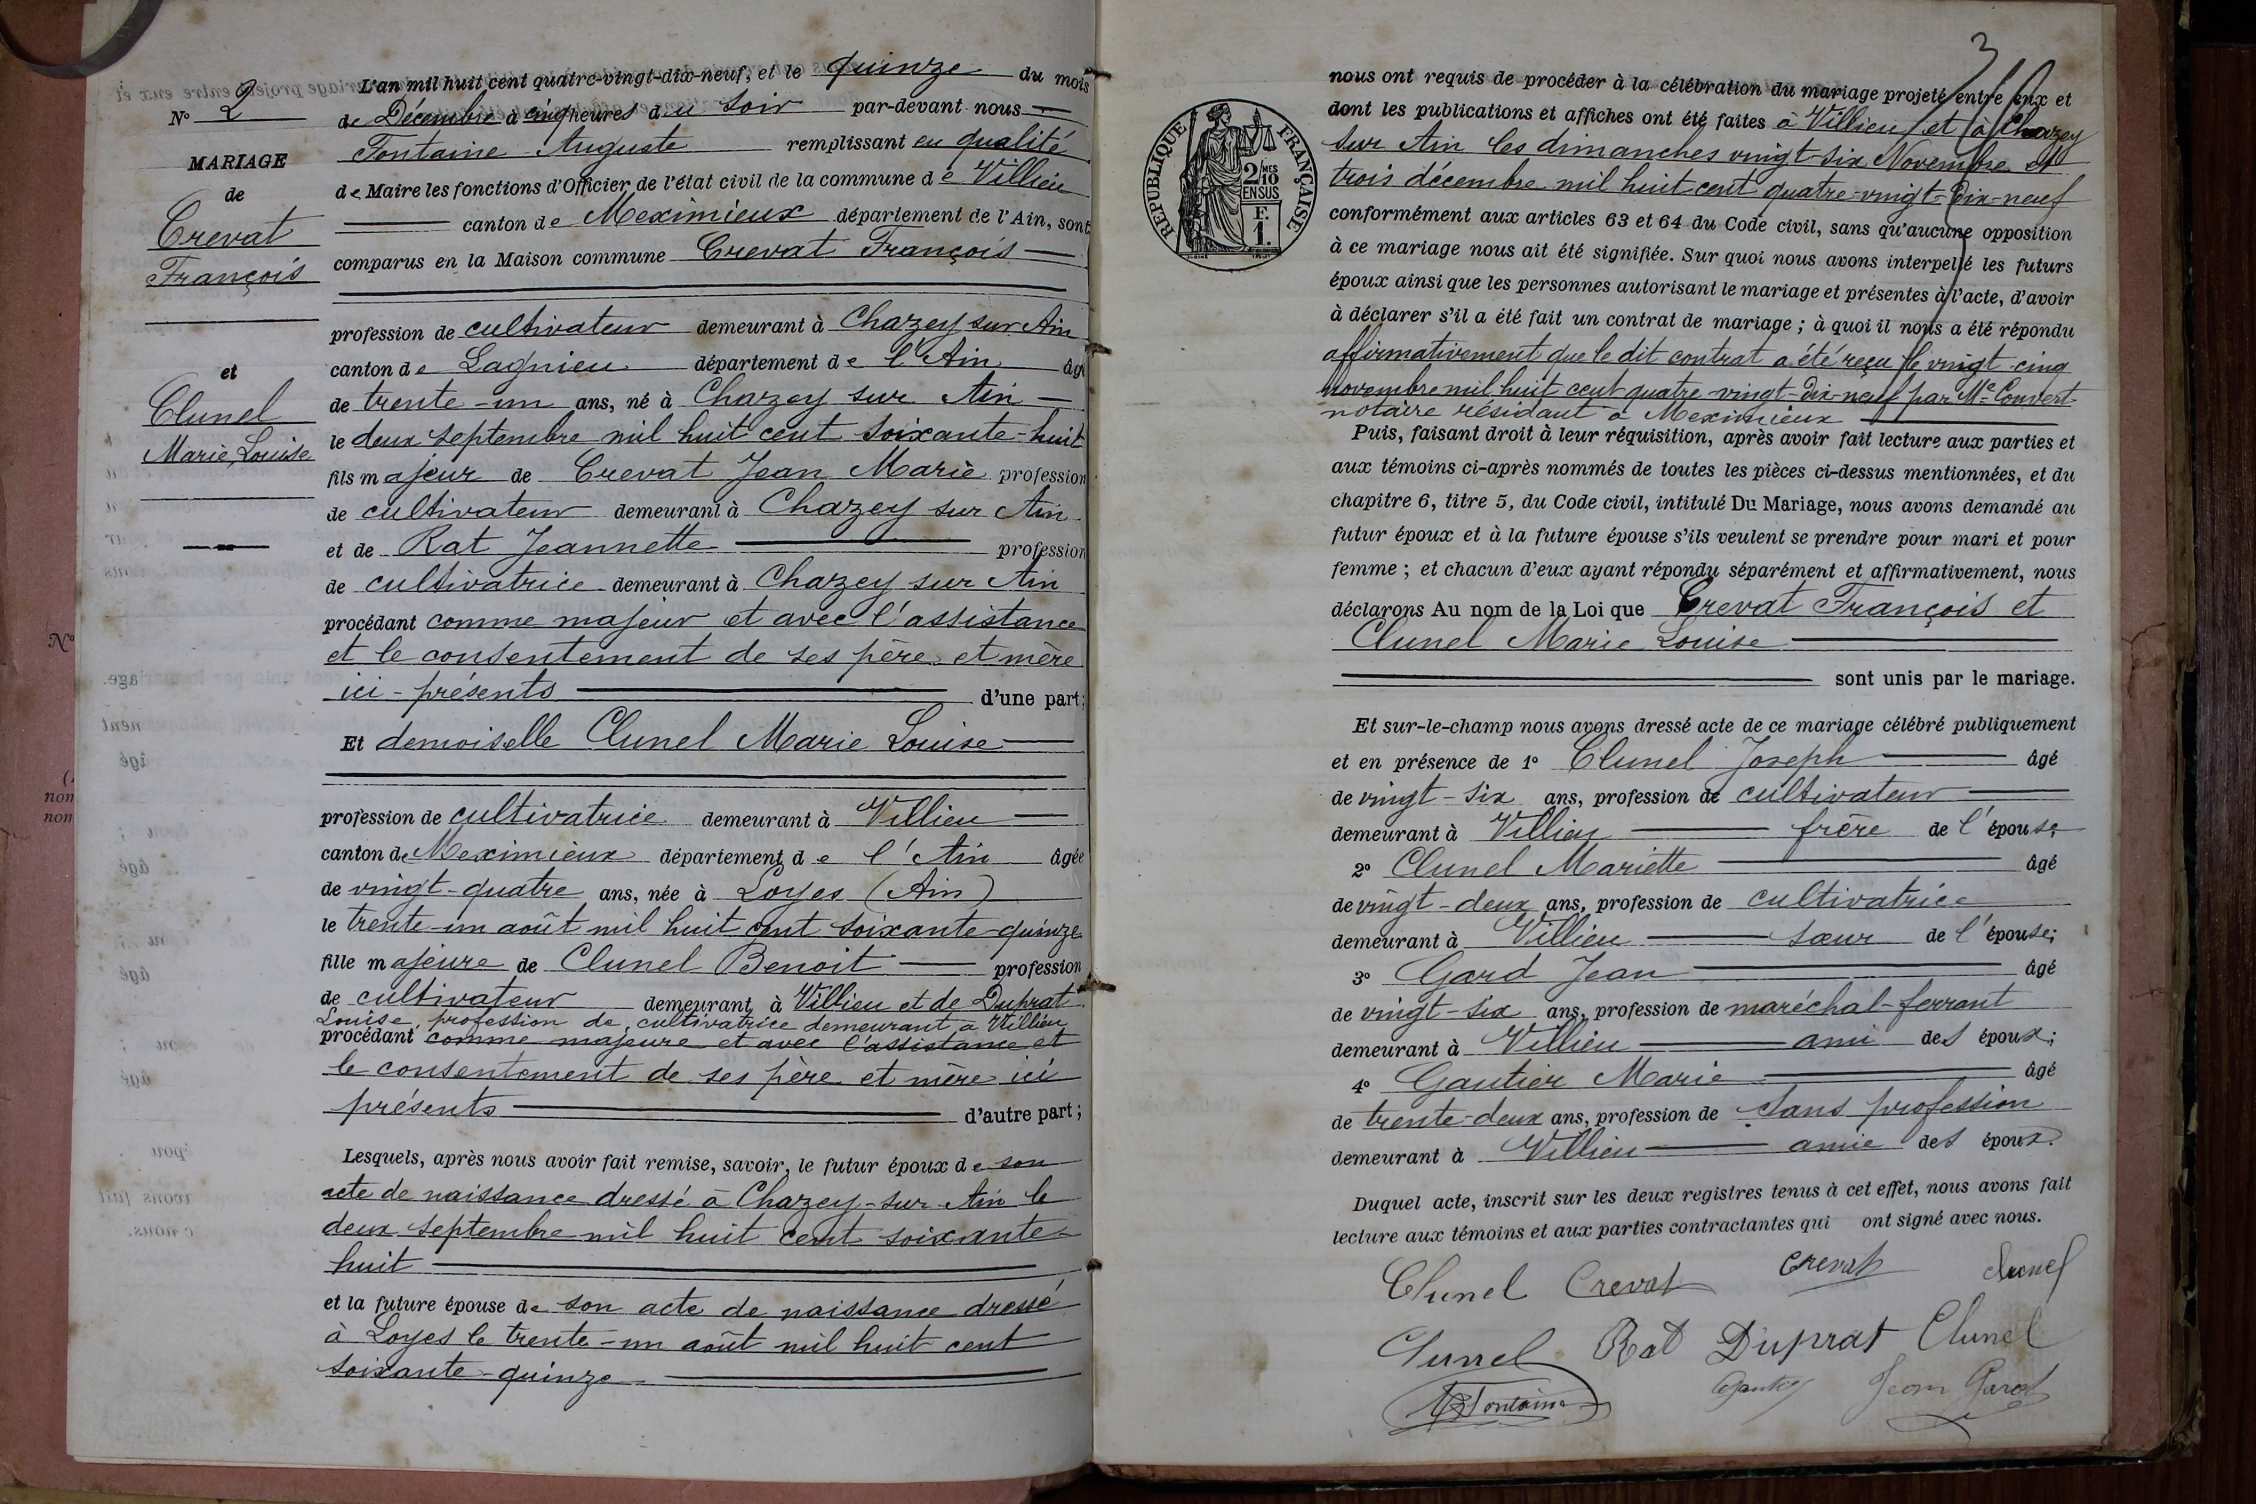 N° 2
MARIAGE
de
Crevat
François
et
Clunel
Marie Louise
L'an mil huit cent quatre-vingt-dix-neuf, et le quinze du mois
de Décembre à cinq heures du soir par-devant nous
Fontaine Auguste remplissant en qualité
de Maire les fonctions d'Officier de l'état civil de la commune de Villieu
canton de Meximieux département de l'Ain, sont
comparus en la Maison commune Crevat François
profession de cultivateur demeurant à Chazey sur Ain
canton de Lagnieu département de l'Ain âgé
de trente-un ans, né à Chazey sur Ain
le deux septembre mil huit cent soixante-huit
fils majeur de Crevat Jean Marie profession
de cultivateur demeurant à Chazey sur Ain
et de Rat Jeannette profession
de cultivatrice demeurant à Chazey sur Ain
procédant comme majeur et avec l'assistance
et le consentement de ses père et mère
ici-présents d'une part;
Et demoiselle Clunel Marie Louise
profession de cultivatrice demeurant à Villieu
canton de Meximieux département de l'Ain âgée
de vingt-quatre ans, née à Loyes (Ain)
le trente-un août mil huit cent soixante-quinze
fille majeure de Clunel Benoit profession
de cultivateur demeurant à Villieu et de Duprat
Louise, profession de cultivatrice demeurant à Villieu
procédant comme majeure et avec l'assistance et
le consentement de ses père et mère ici
présents d'autre part;
Lesquels, après nous avoir fait remise, savoir, le futur époux de son
acte de naissance dressé à Chazey-sur-Ain le
deux septembre mil huit cent soixante-
huit
et la future épouse de son acte de naissance dressé
à Loyes le trente-un août mil huit cent
soixante-quinze
3
RÉPUBLIQUE FRANÇAISE
2/10 MES
EN SUS
F.
1.
nous ont requis de procéder à la célébration du mariage projeté entre eux et
dont les publications et affiches ont été faites à Villieu et à Chazey
sur Ain les dimanches vingt-six Novembre et
trois décembre mil huit cent quatre-vingt-dix-neuf
conformément aux articles 63 et 64 du Code civil, sans qu'aucune opposition
à ce mariage nous ait été signifiée. Sur quoi nous avons interpellé les futurs
époux ainsi que les personnes autorisant le mariage et présentes à l'acte, d'avoir
à déclarer s'il a été fait un contrat de mariage ; à quoi il nous a été répondu
affirmativement que le dit contrat a été reçu le vingt-cinq
novembre mil huit cent quatre-vingt-dix-neuf par Me Convert
notaire résidant à Meximieux
Puis, faisant droit à leur réquisition, après avoir fait lecture aux parties et
aux témoins ci-après nommés de toutes les pièces ci-dessus mentionnées, et du
chapitre 6, titre 5, du Code civil, intitulé Du Mariage, nous avons demandé au
futur époux et à la future épouse s'ils veulent se prendre pour mari et pour
femme ; et chacun d'eux ayant répondu séparément et affirmativement, nous
déclarons Au nom de la Loi que Crevat François et
Clunel Marie Louise
sont unis par le mariage.
Et sur-le-champ nous avons dressé acte de ce mariage célébré publiquement
et en présence de 1° Clunel Joseph âgé
de vingt-six ans, profession de cultivateur
demeurant à Villieu frère de l'épouse;
2° Clunel Mariette âgé
de vingt-deux ans, profession de cultivatrice
demeurant à Villieu sœur de l'épouse;
3° Gard Jean âgé
de vingt-six ans, profession de maréchal-ferrant
demeurant à Villieu ami des époux;
4° Gautier Marie âgé
de trente-deux ans, profession de sans profession
demeurant à Villieu amie des époux.
Duquel acte, inscrit sur les deux registres tenus à cet effet, nous avons fait
lecture aux témoins et aux parties contractantes qui ont signé avec nous.
Clunel Crevat Crevat Clunel
Clunel Rat Duprat Clunel
Fontaine Gautier Jean Gard